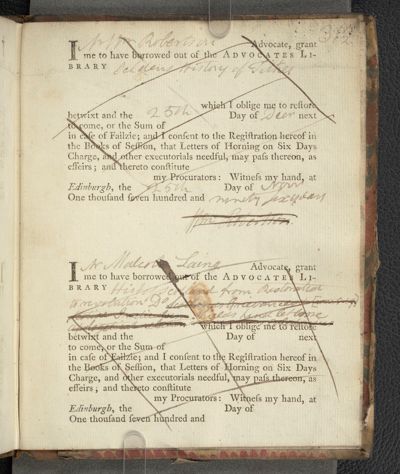 I Mr Wm Robertson Advocate, grant
me to have borrowed out of the ADVOCATES LI-
BRARY Seldens History of Tithes
which I oblige me to reſtore
betwixt and the 25th Day of Decr next
to come, or the Sum of
in caſe of Failzie; and I conſent to the Regiſtration hereof in
the Books of Seſſion, that Letters of Horning on Six Days
Charge, and other executorials needful, may paſs thereon, as
effeirs; and thereto conſtitute
my Procurators: Witneſs my hand, at
Edinburgh, the 25th Day of Novr
One thouſand ſeven hundred and ninety six years
I Mr Malcolm Laing Advocate, grant
me to have borrowed out of the ADVOCATES LI-
BRARY Hist of Scotland from Restoration
which I oblige me to reſtore
betwixt and the Day of next
to come, or the Sum of
in caſe of Failzie; and I conſent to the Regiſtration hereof in
the Books of Seſſion, that Letters of Horning on Six Days
Charge, and other executorials needful, may paſs thereon, as
effeirs; and thereto conſtitute
my Procurators: Witneſs my hand, at
Edinburgh, the Day of
One thouſand ſeven hundred and